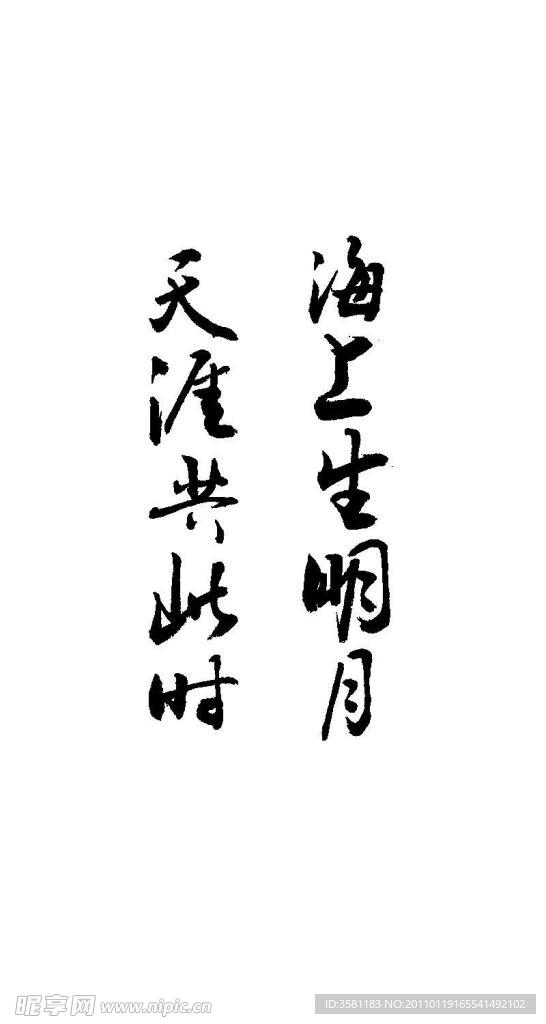 海上生明月
天涯共此时
昵享网 www.nipic.cn
ID:3581183 NO:20110119165541492102